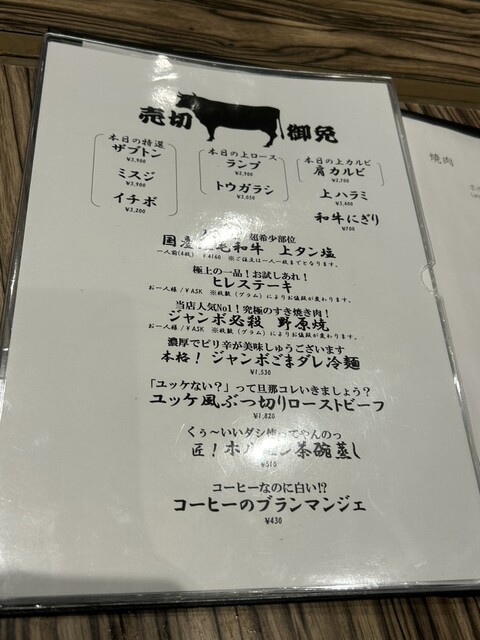 売切 御免
本日の特選
ザブトン
¥3,900
ミスジ
¥3,900
イチボ
¥3,200
本日の上ロース
ランプ
¥2,900
トウガラシ
¥3,050
本日の上カルビ
肩カルビ
上ハラミ
¥3,400
和牛にぎり
¥700
超希少部位
国産 毛和牛 上タン塩
一人前(4枚) ¥4160 ※ご注文は一人一枚までとなります。
極上の一品!お試しあれ!
ヒレステーキ
お一人様/¥ASK ※枚数(グラム)によりお値段が変わります。
当店人気No1!究極のすき焼き肉!
ジャンボ必殺 野原焼
お一人様/¥ASK ※枚数(グラム)によりお値段が変わります。
濃厚でピリ辛が美味しゅうございます
本格!ジャンボごまダレ冷麺
¥1,530
「ユッケない?」って旦那コレいきましょう?
ユッケ風ぶつ切りローストビーフ
¥1,820
くぅ〜いいダシ使ってやんのっ
匠!ホルモン茶碗蒸し
¥510
コーヒーなのに白い!?
コーヒーのブランマンジェ
¥430
焼肉